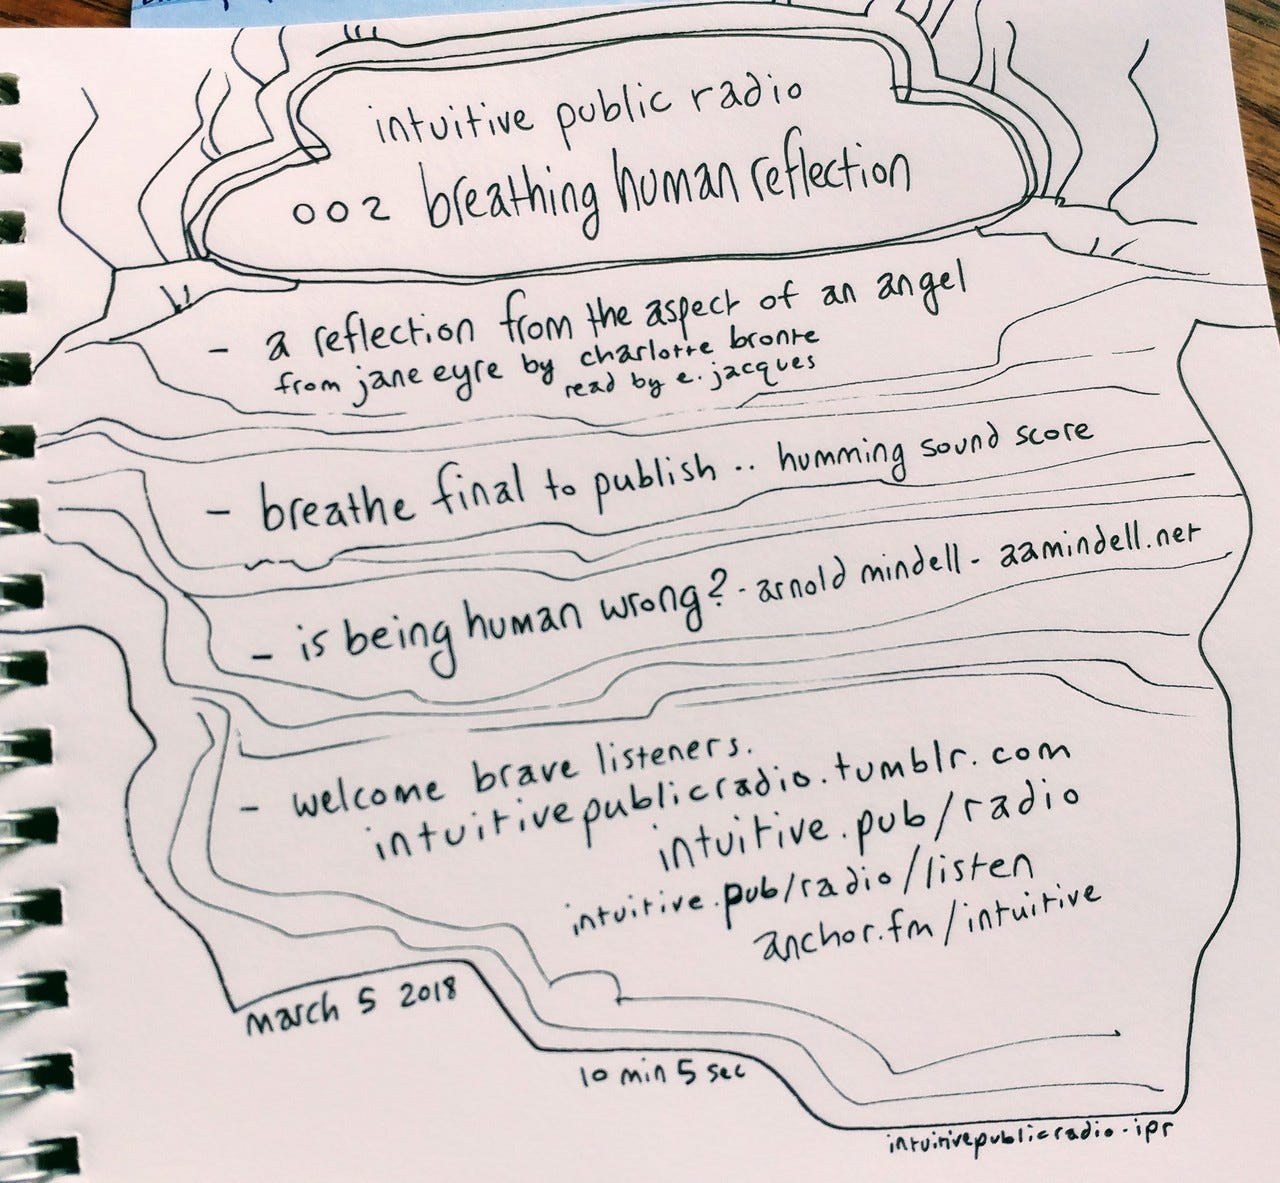 intuitive public radio
002 breathing human reflection
- a reflection from the aspect of an angel
from jane eyre by charlotte bronte
read by e. jacques
- breathe final to publish .. humming sound score
- is being human wrong? - arnold mindell - aamindell.net
- welcome brave listeners.
intuitivepublicradio.tumblr.com
intuitive.pub/radio
intuitive.pub/radio/listen
anchor.fm/intuitive
march 5 2018
10 min 5 sec
intuitivepublicradio-ipr